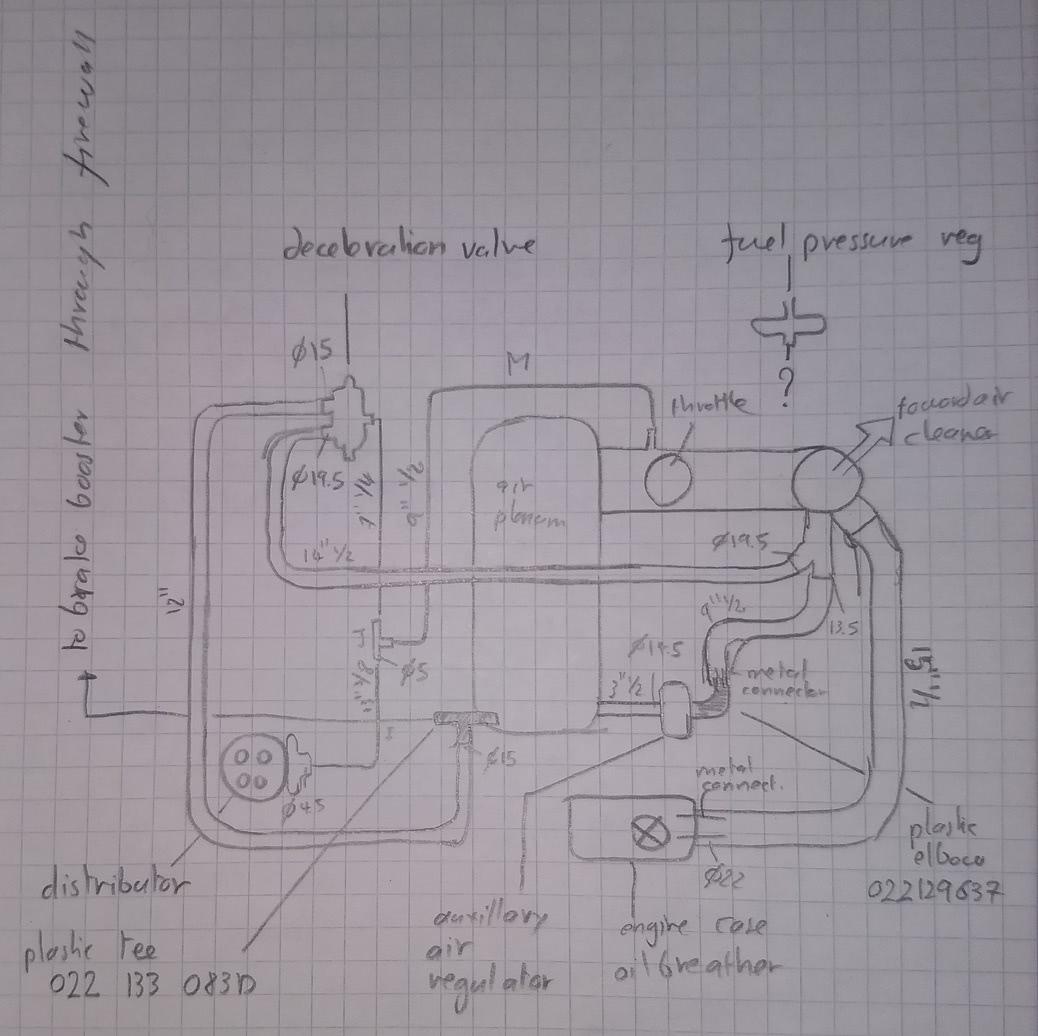 to brake booster through firewall
decelération valve
fuel pressure reg
Ø15
M
throttle
?
toward air
cleaner
Ø19.5
9" 1/2
air
plenum
Ø19.5
14" 1/2
12"
9" 1/2
13.5
Ø19.5
Ø5
3" 1/2
metal
connector
15" 1/2
Ø15
metal
connect.
Ø45
plastic
elbow
022129637
Ø22
distributor
auxillary
air
regulator
engine case
oil breather
plastic tee
022 133 083D